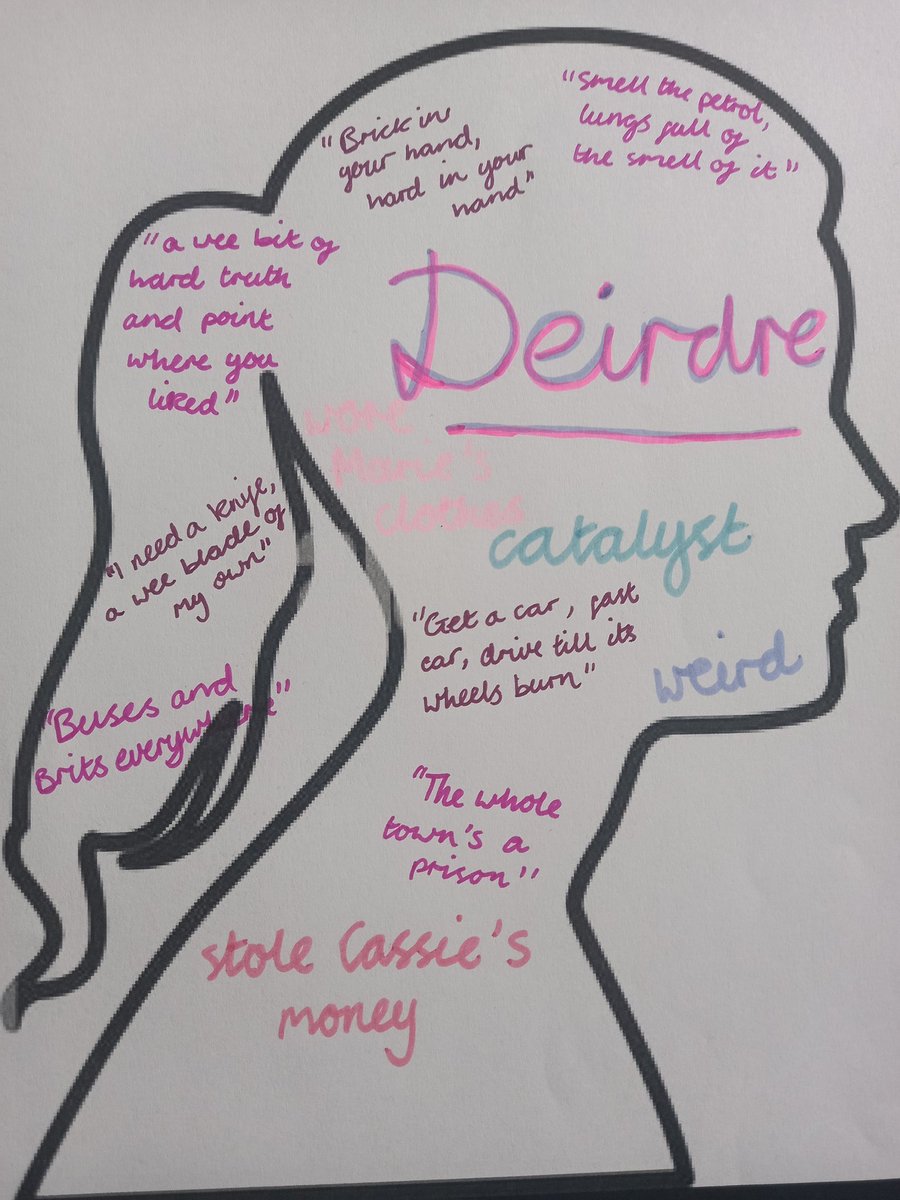 "Brick in
your hand,
hard in your
hand"
"smell the petrol,
lungs full of
the smell of it"
"a wee bit of
hard truth
and point
where you
liked"
Deirdre
wore
Marie's
clothes
catalyst
"I need a knife,
a wee blade of
my own"
"Get a car, fast
car, drive till its
wheels burn"
weird
"Buses and
Brits everywhere"
"The whole
town's a
prison"
stole Cassie's
money